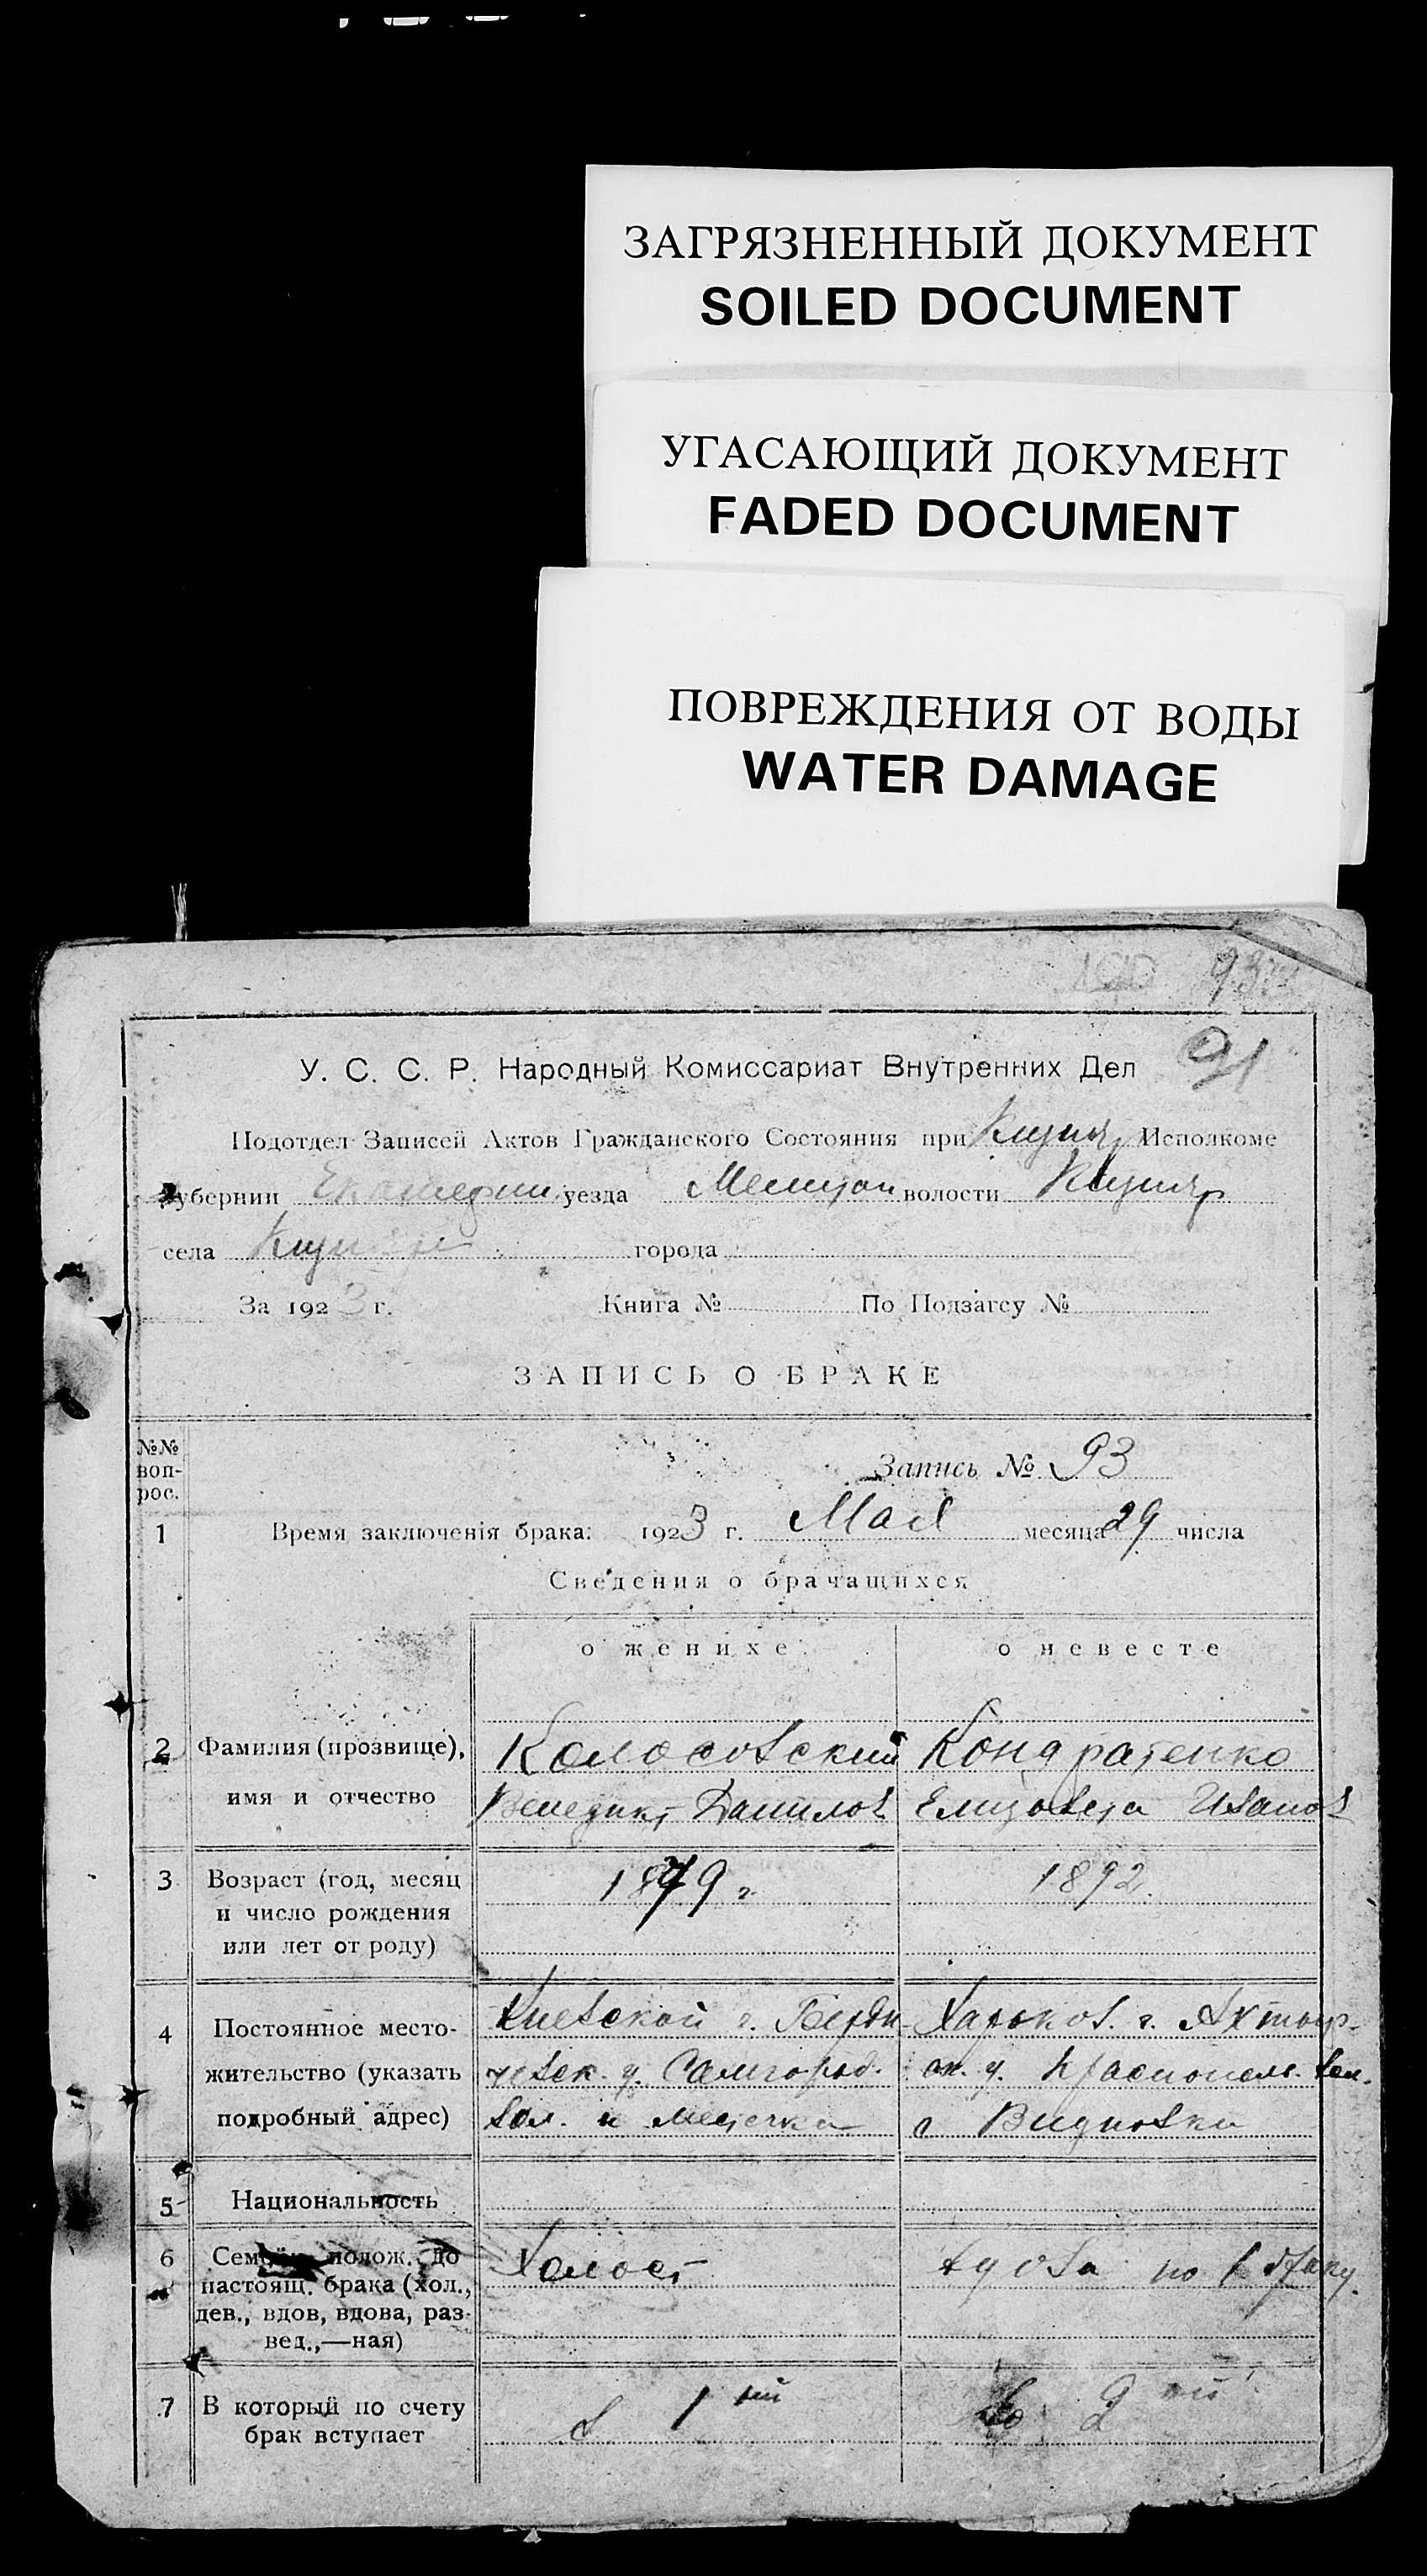 ЗАГРЯЗНЕННЫЙ ДОКУМЕНТ
SOILED DOCUMENT
УГАСАЮЩИЙ ДОКУМЕНТ
FADED DOCUMENT
ПОВРЕЖДЕНИЯ ОТ ВОДЫ
WATER DAMAGE
93
91
У. С. С. Р. Народный Комиссариат Внутренних Дел
Подотдел Записей Актов Гражданского Состояния при Исполкоме
губернии уезда волости
села города
За 1923 г. Книга № По Подзагсу №
ЗАПИСЬ О БРАКЕ
№№ воп-рос.
Запись № 93
1 Время заключенія брака: 1923 г. Мая месяца 29 числа
Сведения о брачащихся
о женихе о невесте
2 Фамилия (прозвище), Колосовский Кондратенко
имя и отчество Венедикт Данилов Елизовета Иванов
3 Возраст (год, месяц 1879 г. 1892
и число рождения
или лет от роду)
4 Постоянное место- Киевской г. Берди- Харьков. г. Ахтыр-
жительство (указать чевск. у. Самгород. ск. у. Краснополь. вол.
подробный адрес) вол. и местечка с
5 Национальность
6 Семейн. полож. до Холост вдова по 1 браку.
настоящ. брака (хол.,
дев., вдов, вдова, раз-
вед.,—ная)
7 В который по счету в 1 ый во 2 ой
брак вступает